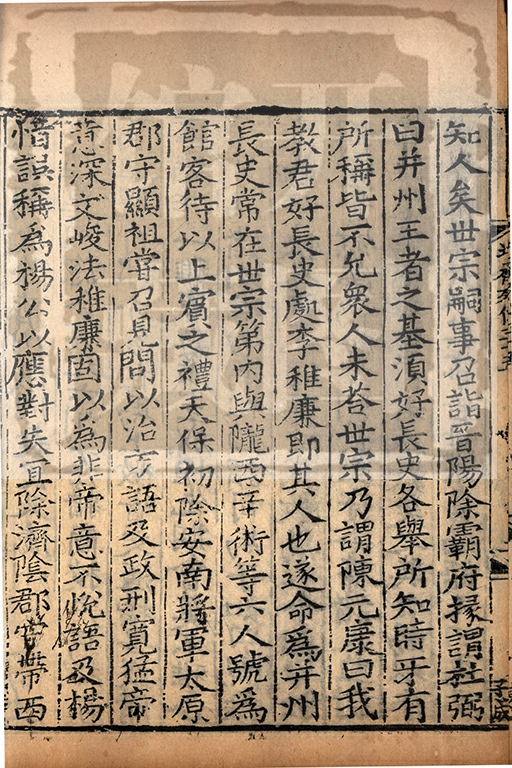 知人矣世宗嗣事召詣晉陽除霸府掾謂杜弼
曰并州王者之基須好長史各舉所知時牙有
所稱皆不允衆人未荅世宗乃謂陳元康曰我
教君好長史處李稚廉即其人也遂命為并州
長史常在世宗第內與隴西辛術等六人號為
館客待以上賓之禮天保初除安南將軍太原
郡守顯祖嘗召見問以治方語及政刑寬猛帝
意深文峻法稚廉固以為非帝意不悅語及楊
愔誤稱為楊公以應對失宜除濟陰郡守帶西